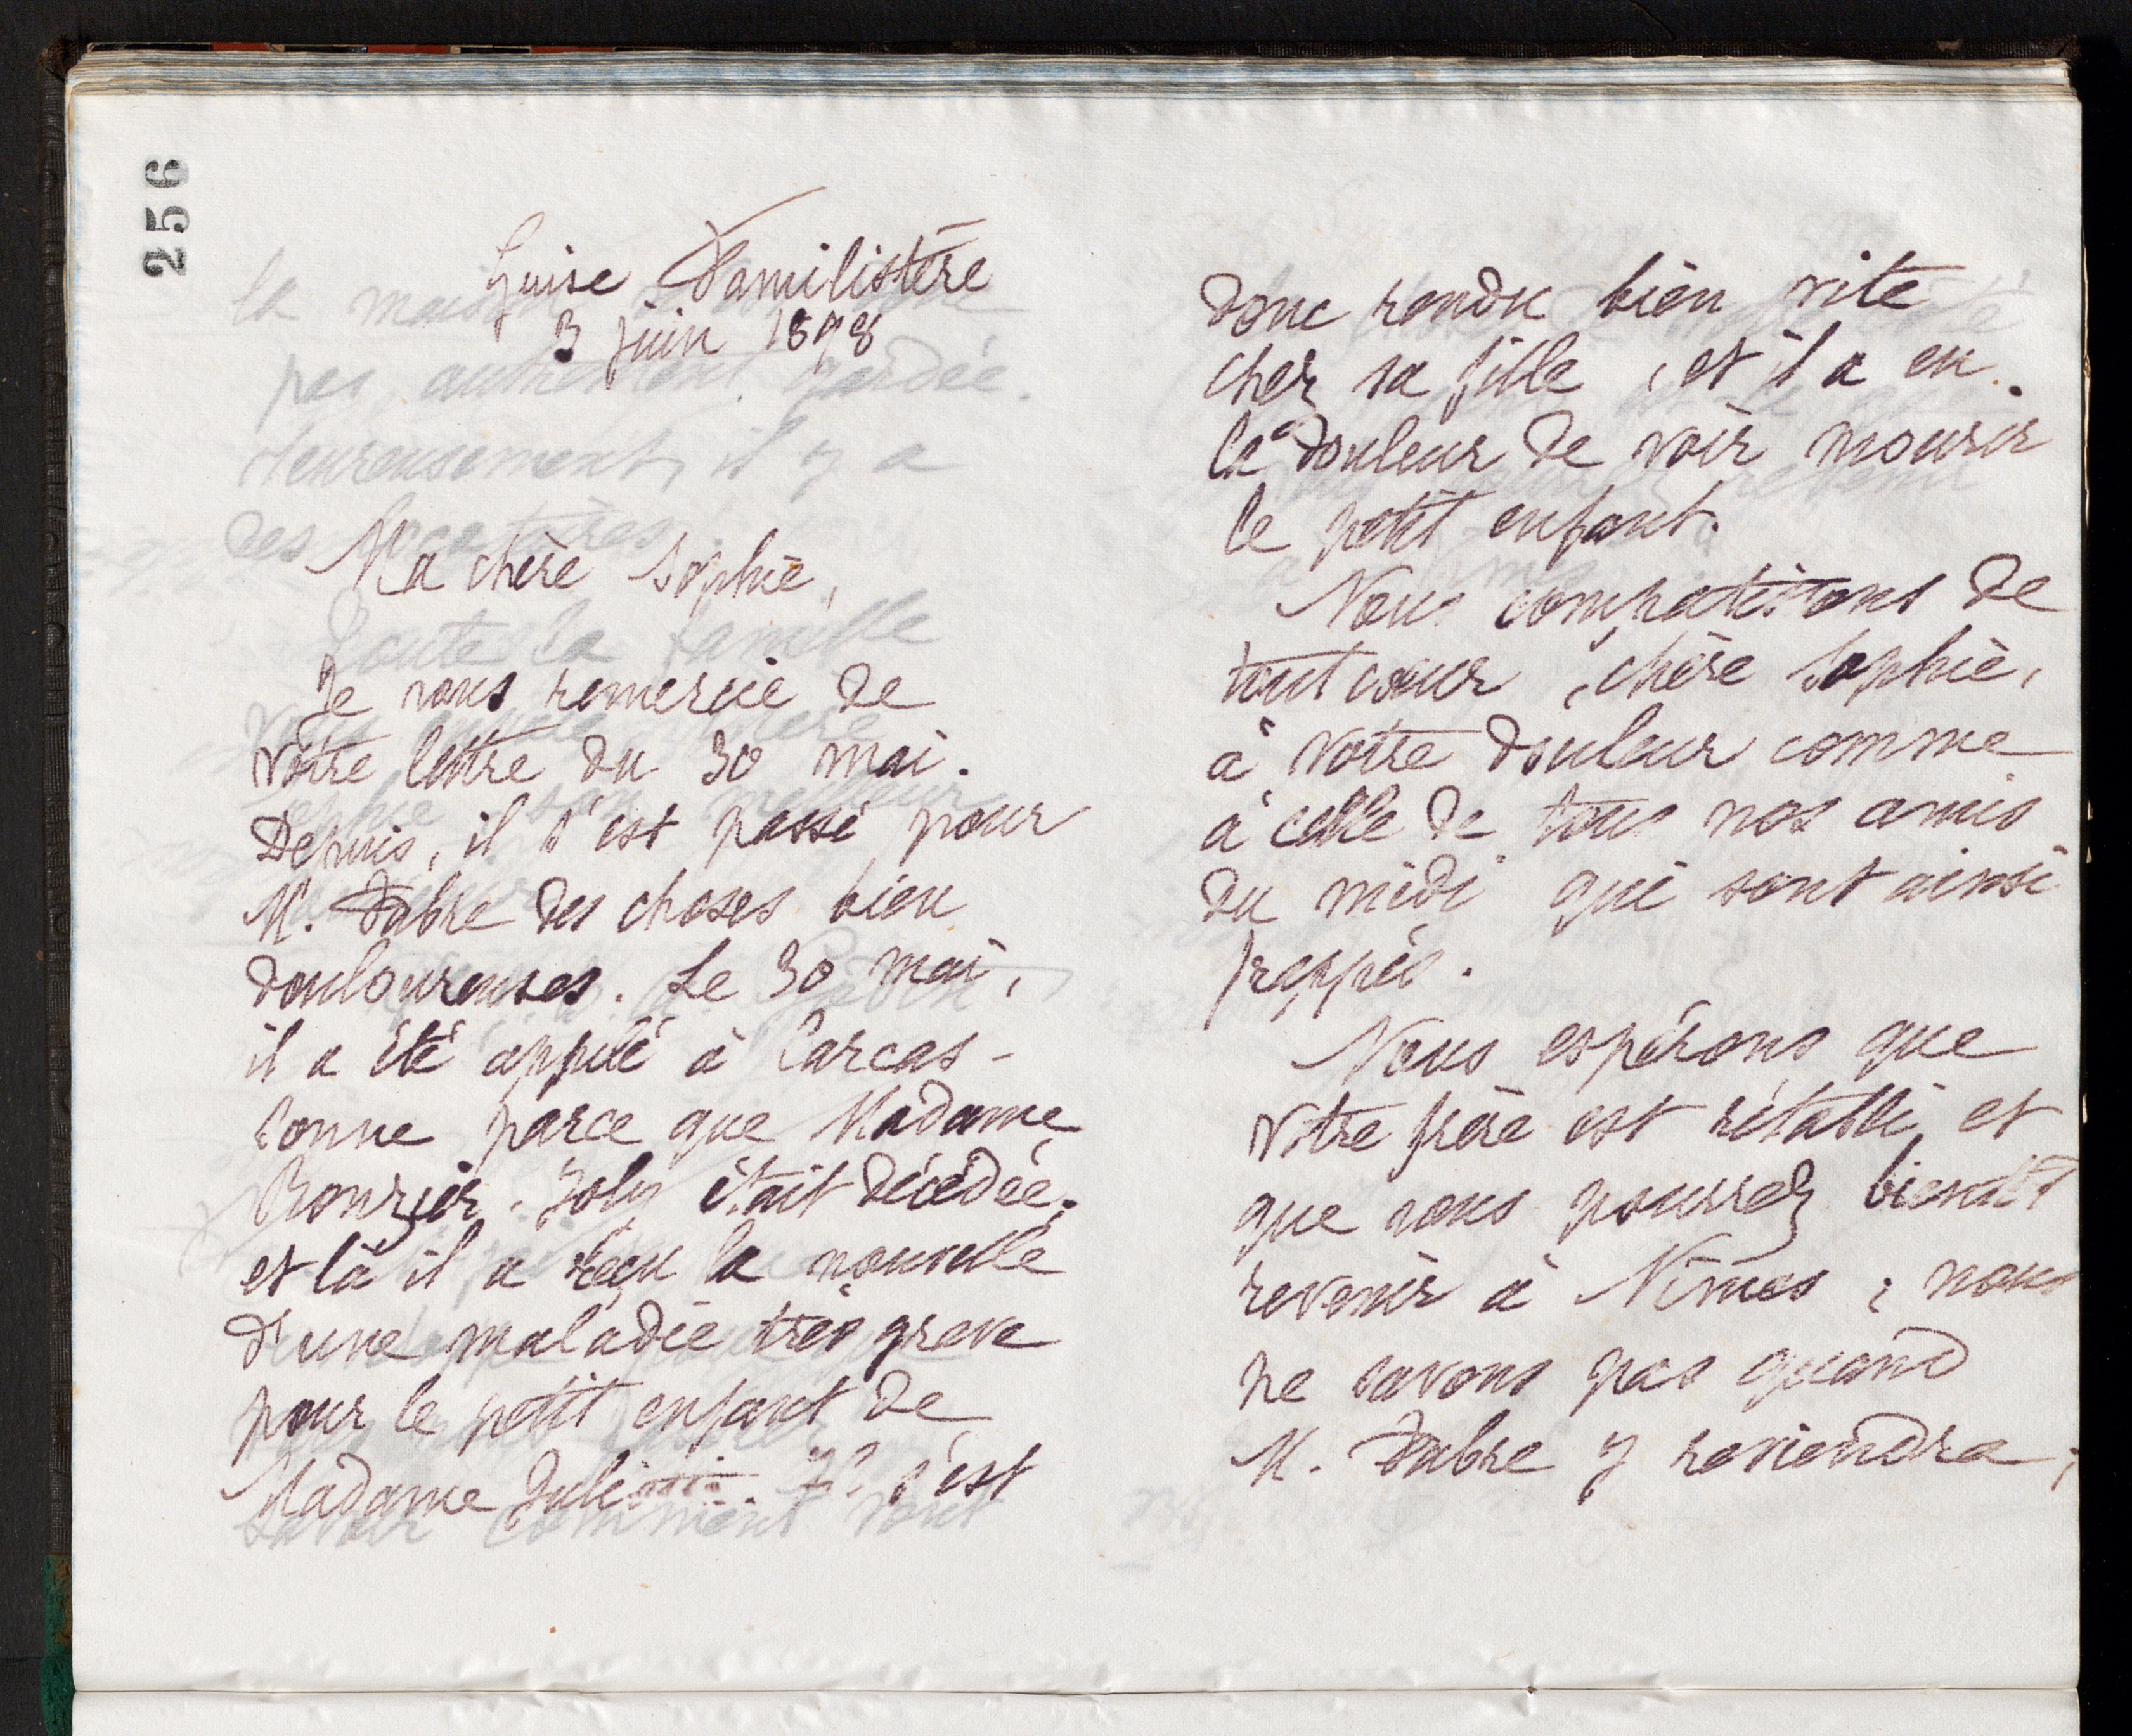 256
Guise Familistère
3 juin 1898
Ma chère Sophie,
Je vous remercie de
votre lettre du 30 mai.
Depuis, il s'est passé pour
M. Fabre des choses bien
douloureuses. Le 30 mai,
il a été appelé à Carcas-
sonne parce que Madame
Rouzier-Joly était décédée;
et là il a reçu la nouvelle
d'une maladie très grave
pour le petit enfant de
Madame Il s'est
donc rendu bien vite
chez sa fille, et il a eu
la douleur de voir mourir
le petit enfant.
Nous compatissons de
tout cœur, chère Sophie,
à votre douleur comme
à celle de tous nos amis
du midi qui sont ainsi
frappés.
Nous espérons que
votre frère est rétabli et
que vous pourrez bientôt
revenir à Nîmes; nous
ne savons pas quand
M. Fabre y reviendra;